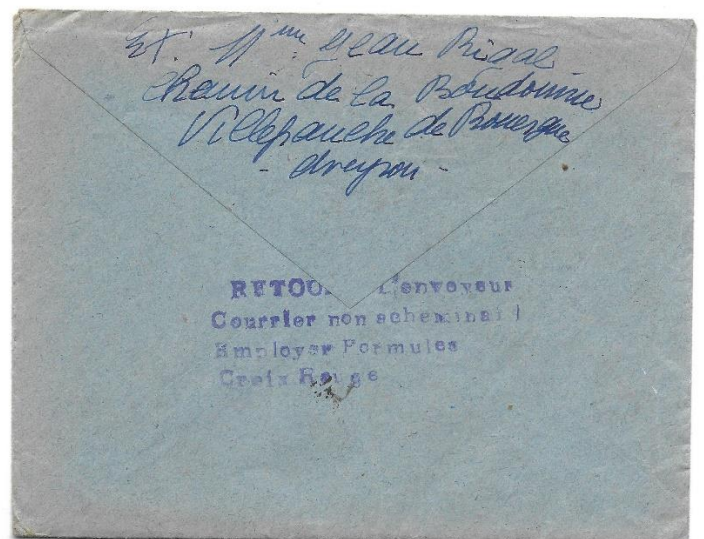 Ex. Mme Jean Rigal
Chemin de la Boudomie
Villefranche de Rouergue
- Aveyron -
RETOU. L'envoyeur
Courrier non acheminabl
Employer Formules
Croix Rouge